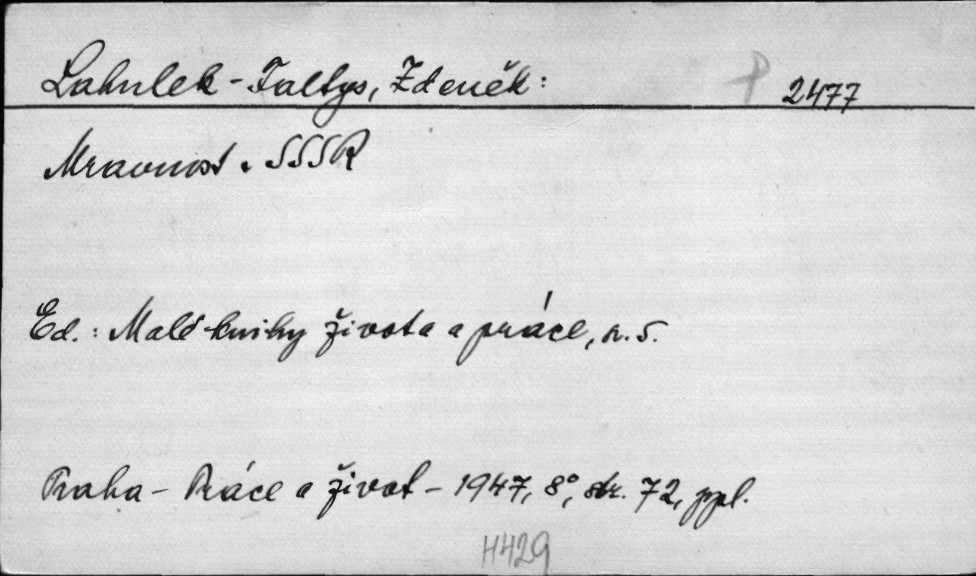 Lahulek-Faltys, Zdeněk: P 2477
Mravnost v SSSR
Ed.: Malé knihy života a práce, sv. 5.
Praha - Práce a život - 1947, 8°, str. 72, ppl.
H429